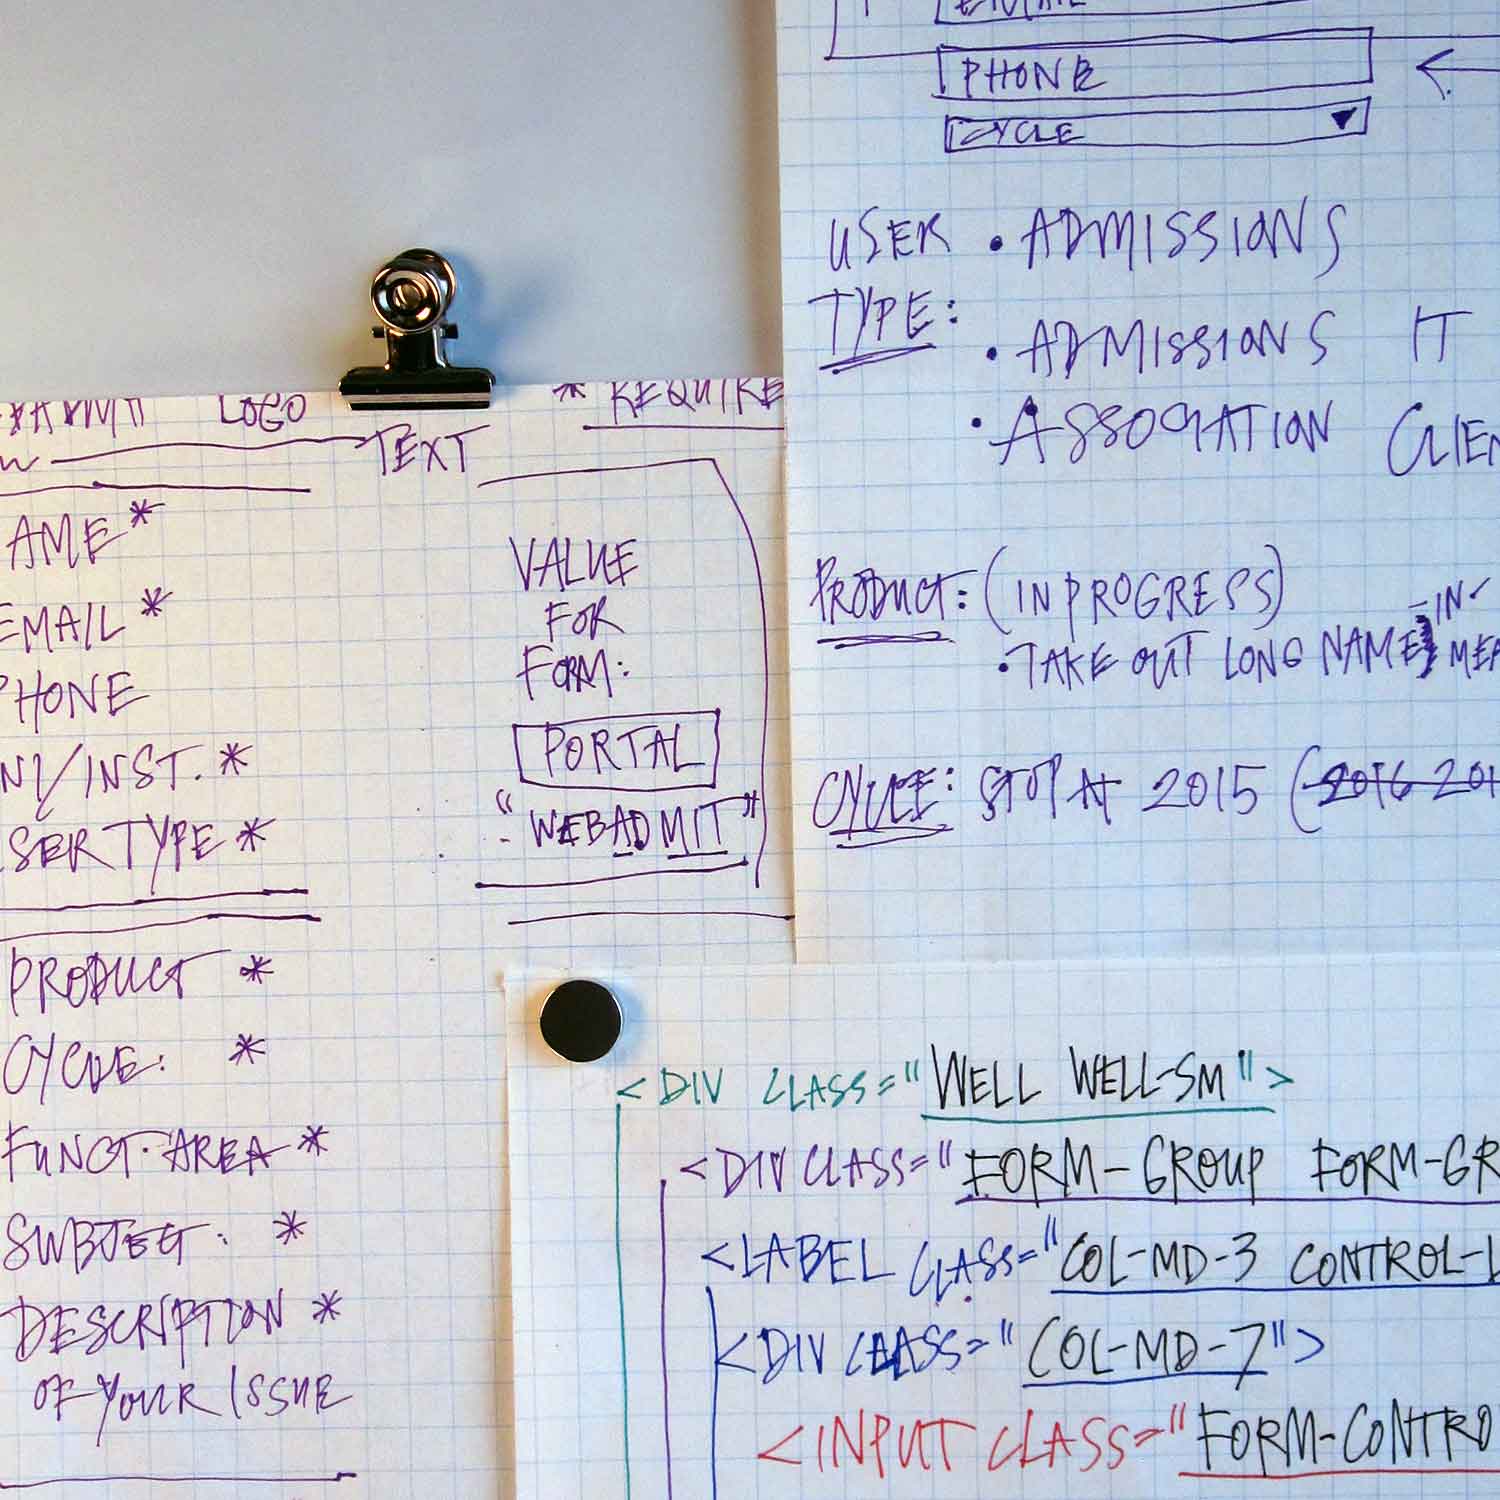 LOGO
* REQUIRE
TEXT
AME *
EMAIL *
PHONE
NI/INST. *
SER TYPE *
PRODUCT *
CYCLE: *
FUNCT. AREA *
SUBJECT: *
DESCRIPTION *
OF YOUR ISSUE
VALUE
FOR
FORM:
PORTAL
"WEBADMIT"
EMAIL
PHONE
CYCLE
USER • ADMISSIONS
TYPE:
• ADMISSIONS IT
• ASSOCIATION CLIEN
PRODUCT: (IN PROGRESS)
• TAKE OUT LONG NAMES
IN-
MEA
CYCLE: STOP AT 2015 (2016 201
<DIV CLASS="WELL WELL-SM">
<DIV CLASS="FORM-GROUP FORM-GR
<LABEL CLASS="COL-MD-3 CONTROL-L
<DIV CLASS="COL-MD-7">
<INPUT CLASS="FORM-CONTRO